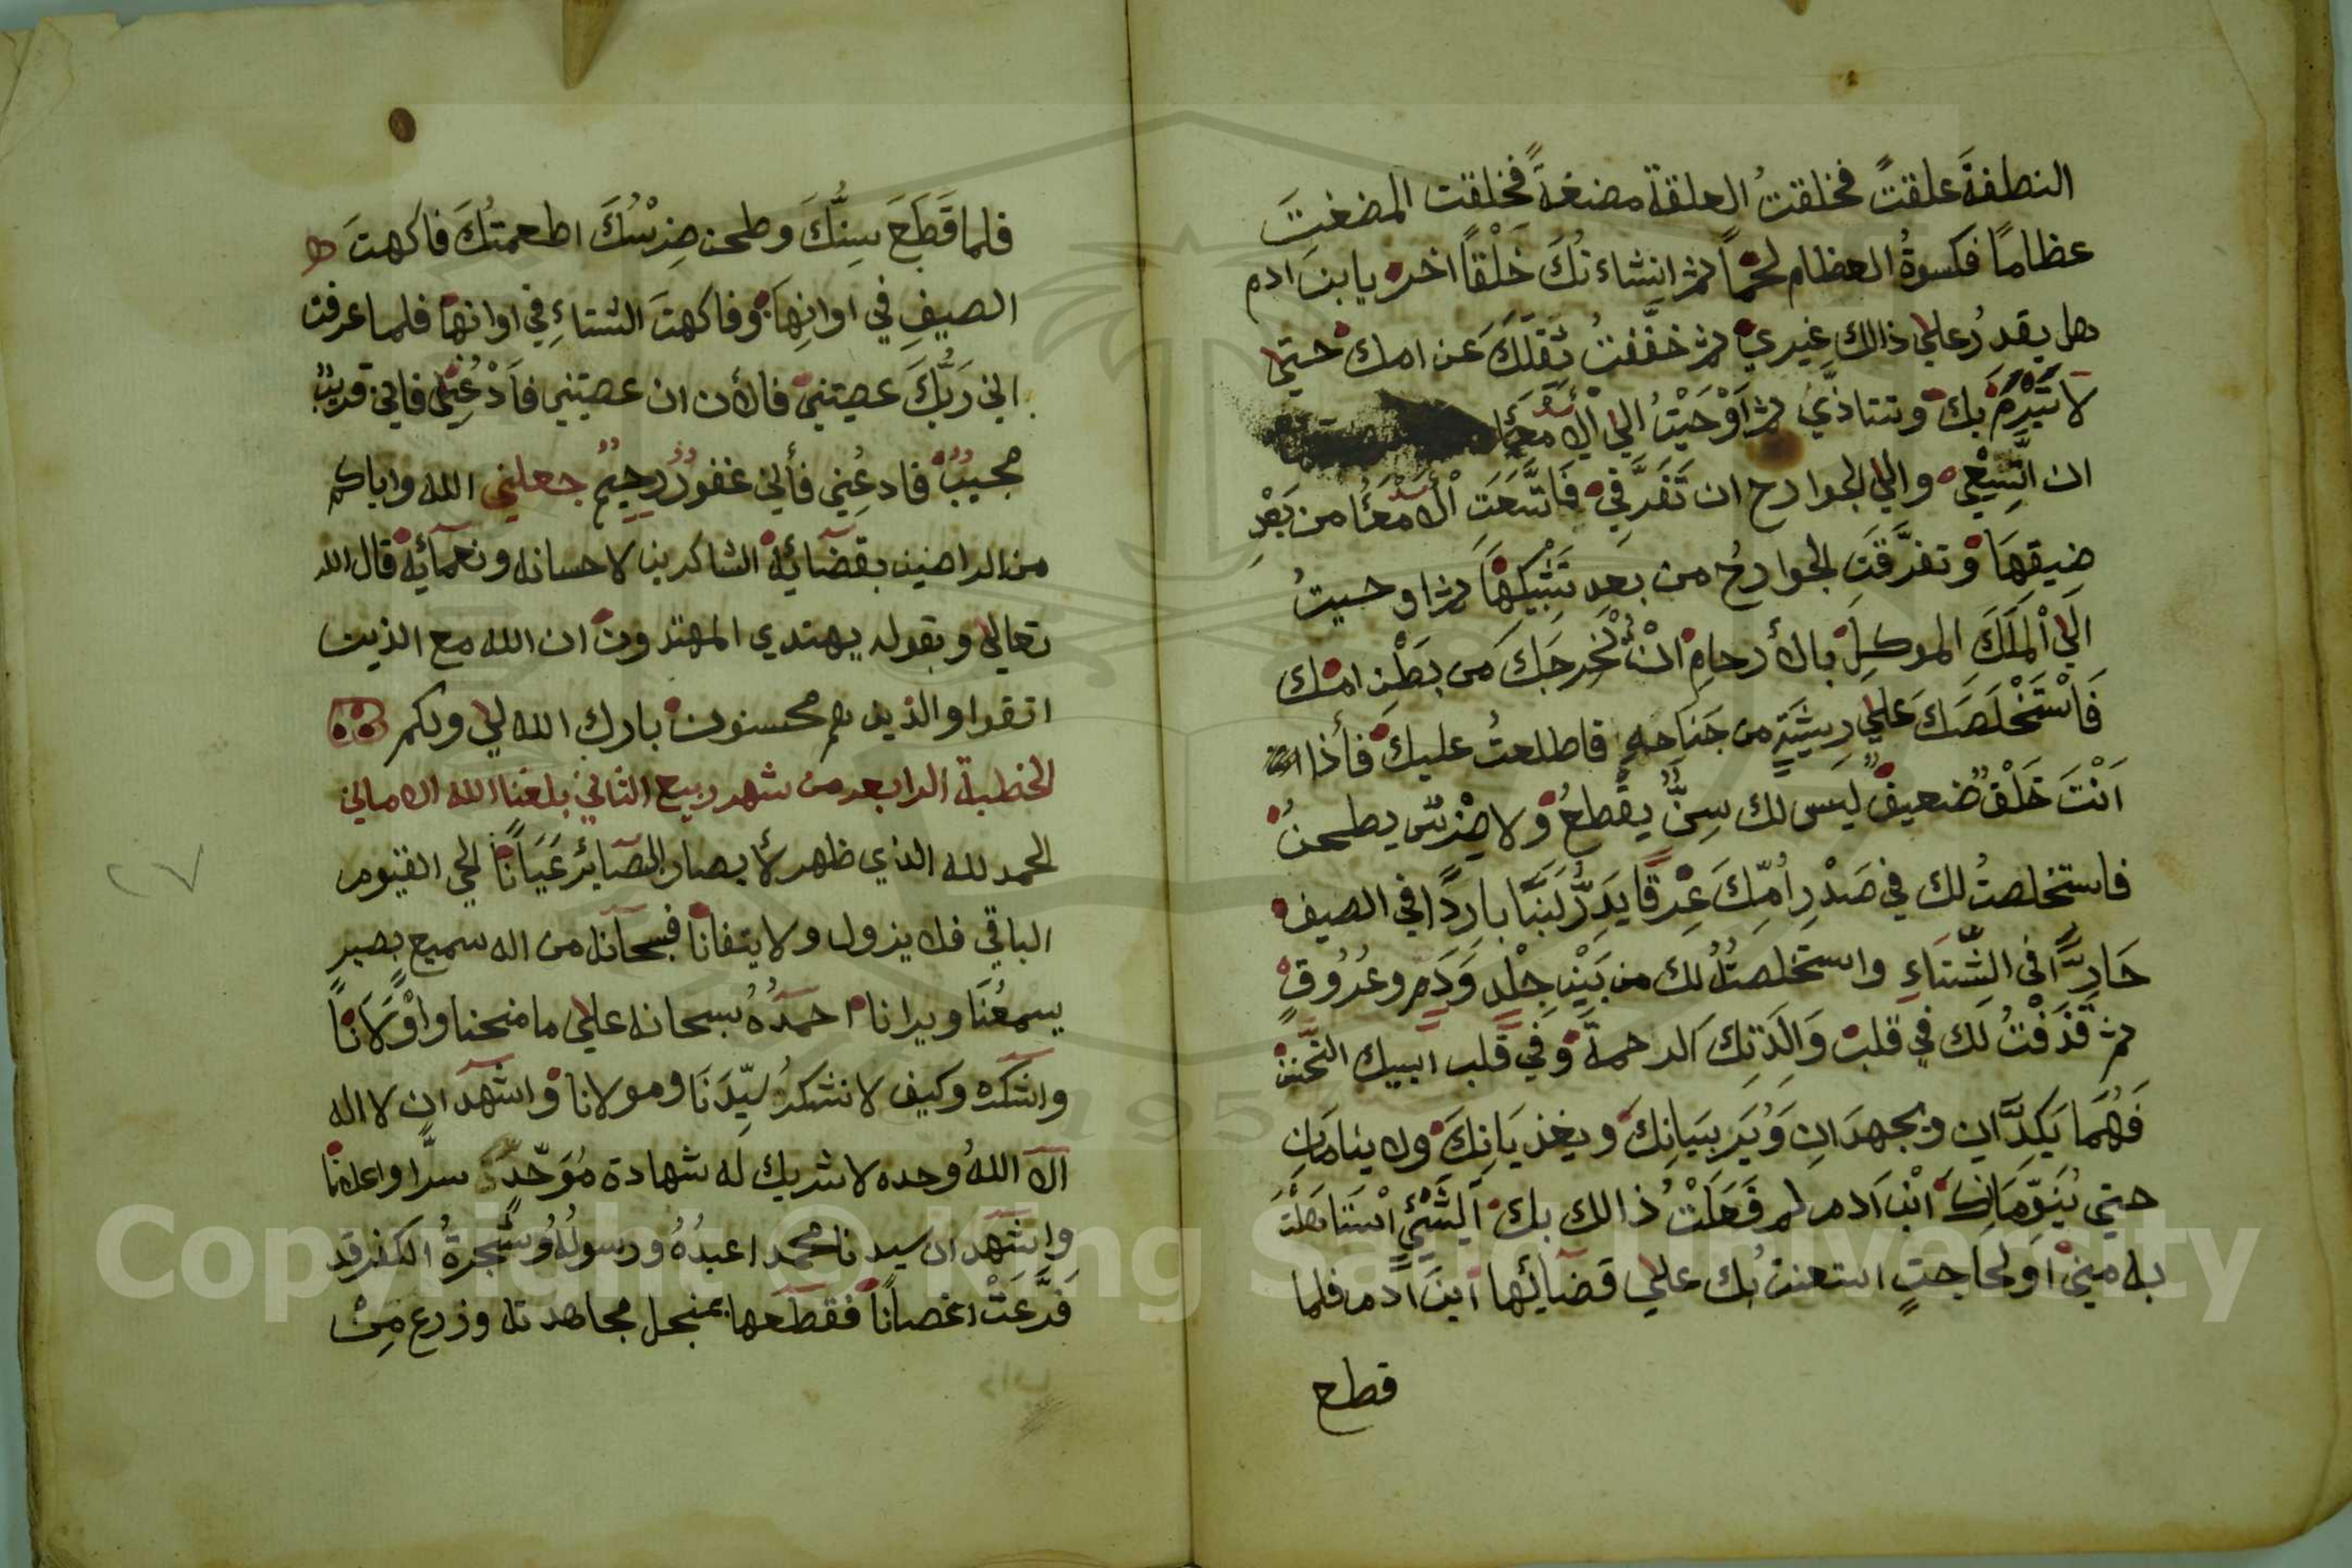 النطفةَ علقتً فخلقتُ العلقة مضغةً فخلقت المضغتَ
عظامًا فكسوةُ العظام لحمًا ثم انشاء نُكَ خَلْقًا اخر يا بن ادم
هل يقدرُ علي ذالك غيري ثم خفَّفتُ ثقلَكَ عن امك حتي
لا تَبَرَّمَ بك وتتاذَّي ثم اَوْحَيْتُ الي الْاَمعَاَ
ان اتَّسِعْي والي الجوارح ان تَفَرَّقِي فَاتَّسَعَتِ الْاَمْعَاُ من بَعْدِ
ضيقِهَا وتفرَّقَتِ الجوارحُ من بعدِ تَشْبِيكِهَا ثم اوحيتُ
اِلَي الْمَلَكَ الموكلِ بالأرحامِ انْ يُخْرِجَكَ من بَطْنِ امك
فَاسْتَخْلَصَكَ عَلَي رِيشَةٍ من جَنَاحِهِ فاطلعتُ عليك فأذا
اَنْتَ خَلْقٌ ضعيفٌ ليس لك سِنٌّ يقطعُ ولا ضِرْسٌ يطحنُ
فاستخلصتُ لك في صَدْرِ اُمِّكَ عِرْقًا يَدِرُّ لَبَنًا بارِدًا في الصيف
حَارًّا في الشِّتَاءِ واستخلصتُهُ لك من بَيْنِ جِلْدٍ وَدَمٍ وعُرُوقٍ
ثم قَذَفْتُ لك في قلب وَالِدَتِكَ الرحمةَ وَفِي قلب ابيك التحنن
فَهُمَا يَكِدَّانِ ويجهدَانِ وَيُرَبِيَانِكَ ويغذيَانِكَ ولا ينامَانِ
حتي يُنَوِّمَانِكَ ابْنَ اَدم لم فَعَلْتُ ذالك بك اَلِشَيْئٍ اسْتَاهَلْتَ
به مِنِي اَو لِحَاجتٍ استعنتُ بك علي قضَايَها ابنَ اَدم فلما
قطع
فلما قَطَعَ سِنُّكَ وطحن ضِرْسُكَ اطعمتُكَ فاكهتَ
الصيفِ في اوانِهَا وفاكهتَ الشتاءِ في اوانها فلما عرفت
اني رَبُّكَ عصيتني فالأن ان عصيتني فاَدْعُنِي فاني قريبٌ
مجيبٌ فادعُنِي فأني غفورٌ رحيمٌ جعلني الله واياكم
من الراضين بقضَائِه الشاكرين لاحسانه ونعمائِه قال الله
تعالي وبقوله يهتدي المهتدون ان الله مع الذين
اتقوا والذين هم محسنون بارك الله لي ولكم
الخطبة الرابعه من شهر ربيع الثاني بلغنا الله الاماني
الحمد لله الذي ظهر لأبصار البصَايرِ عَيَانًا الحي القيوم
الباقي فلا يزول ولا يتفانا فسبحانه من اله سميع بصير
يسمعُنَا ويرانا احمدُهُ سبحانه علي ما منحنا واَوْلَانًا
واشكره وكيف لا نشكرُ سيِّدَنَا ومولانا واشهد ان لا اله
الا اللهُ وحده لا شريك له شهادة مُوَحِّدٍ سرًّا واعلانا
واشهد ان سيدنا محمدا عبدُهُ ورسولُهُ وشجرةُ الكفر قد
فَرَّعَتْ اغصانًا فقطعها بمنجل مجاهدته وزرع مِنْ
٢٧
Copyright © King Saud University